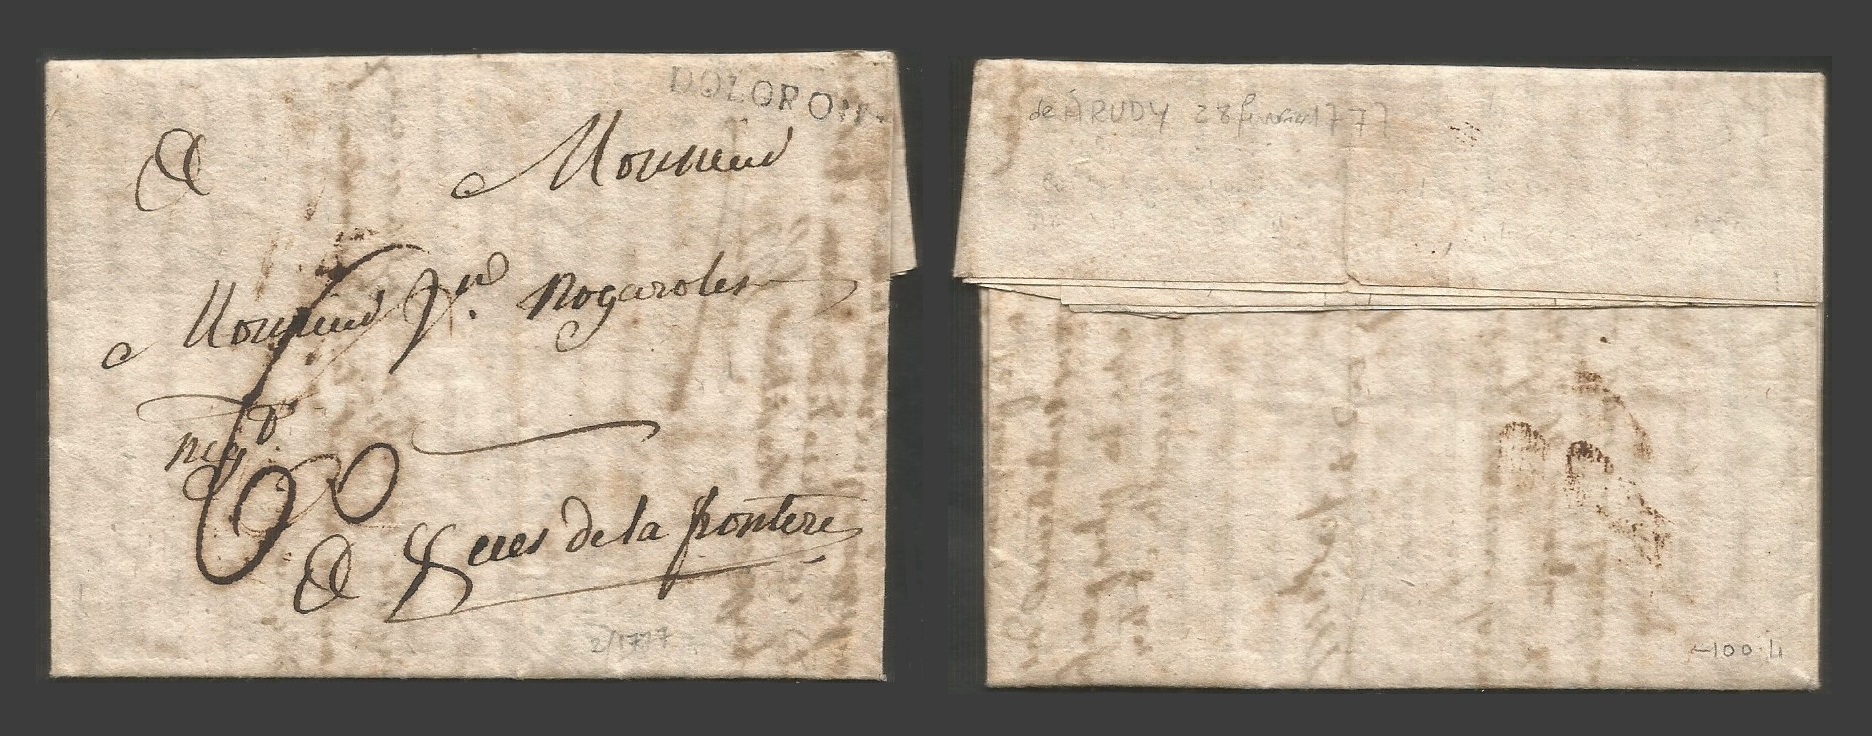 DOLORON
A Monsieur
Monsieur Jn. Nogaroles
negt.
60
A Xeres de la frontere
2/1777
de ARUDY 28 fevrier 1777
100.